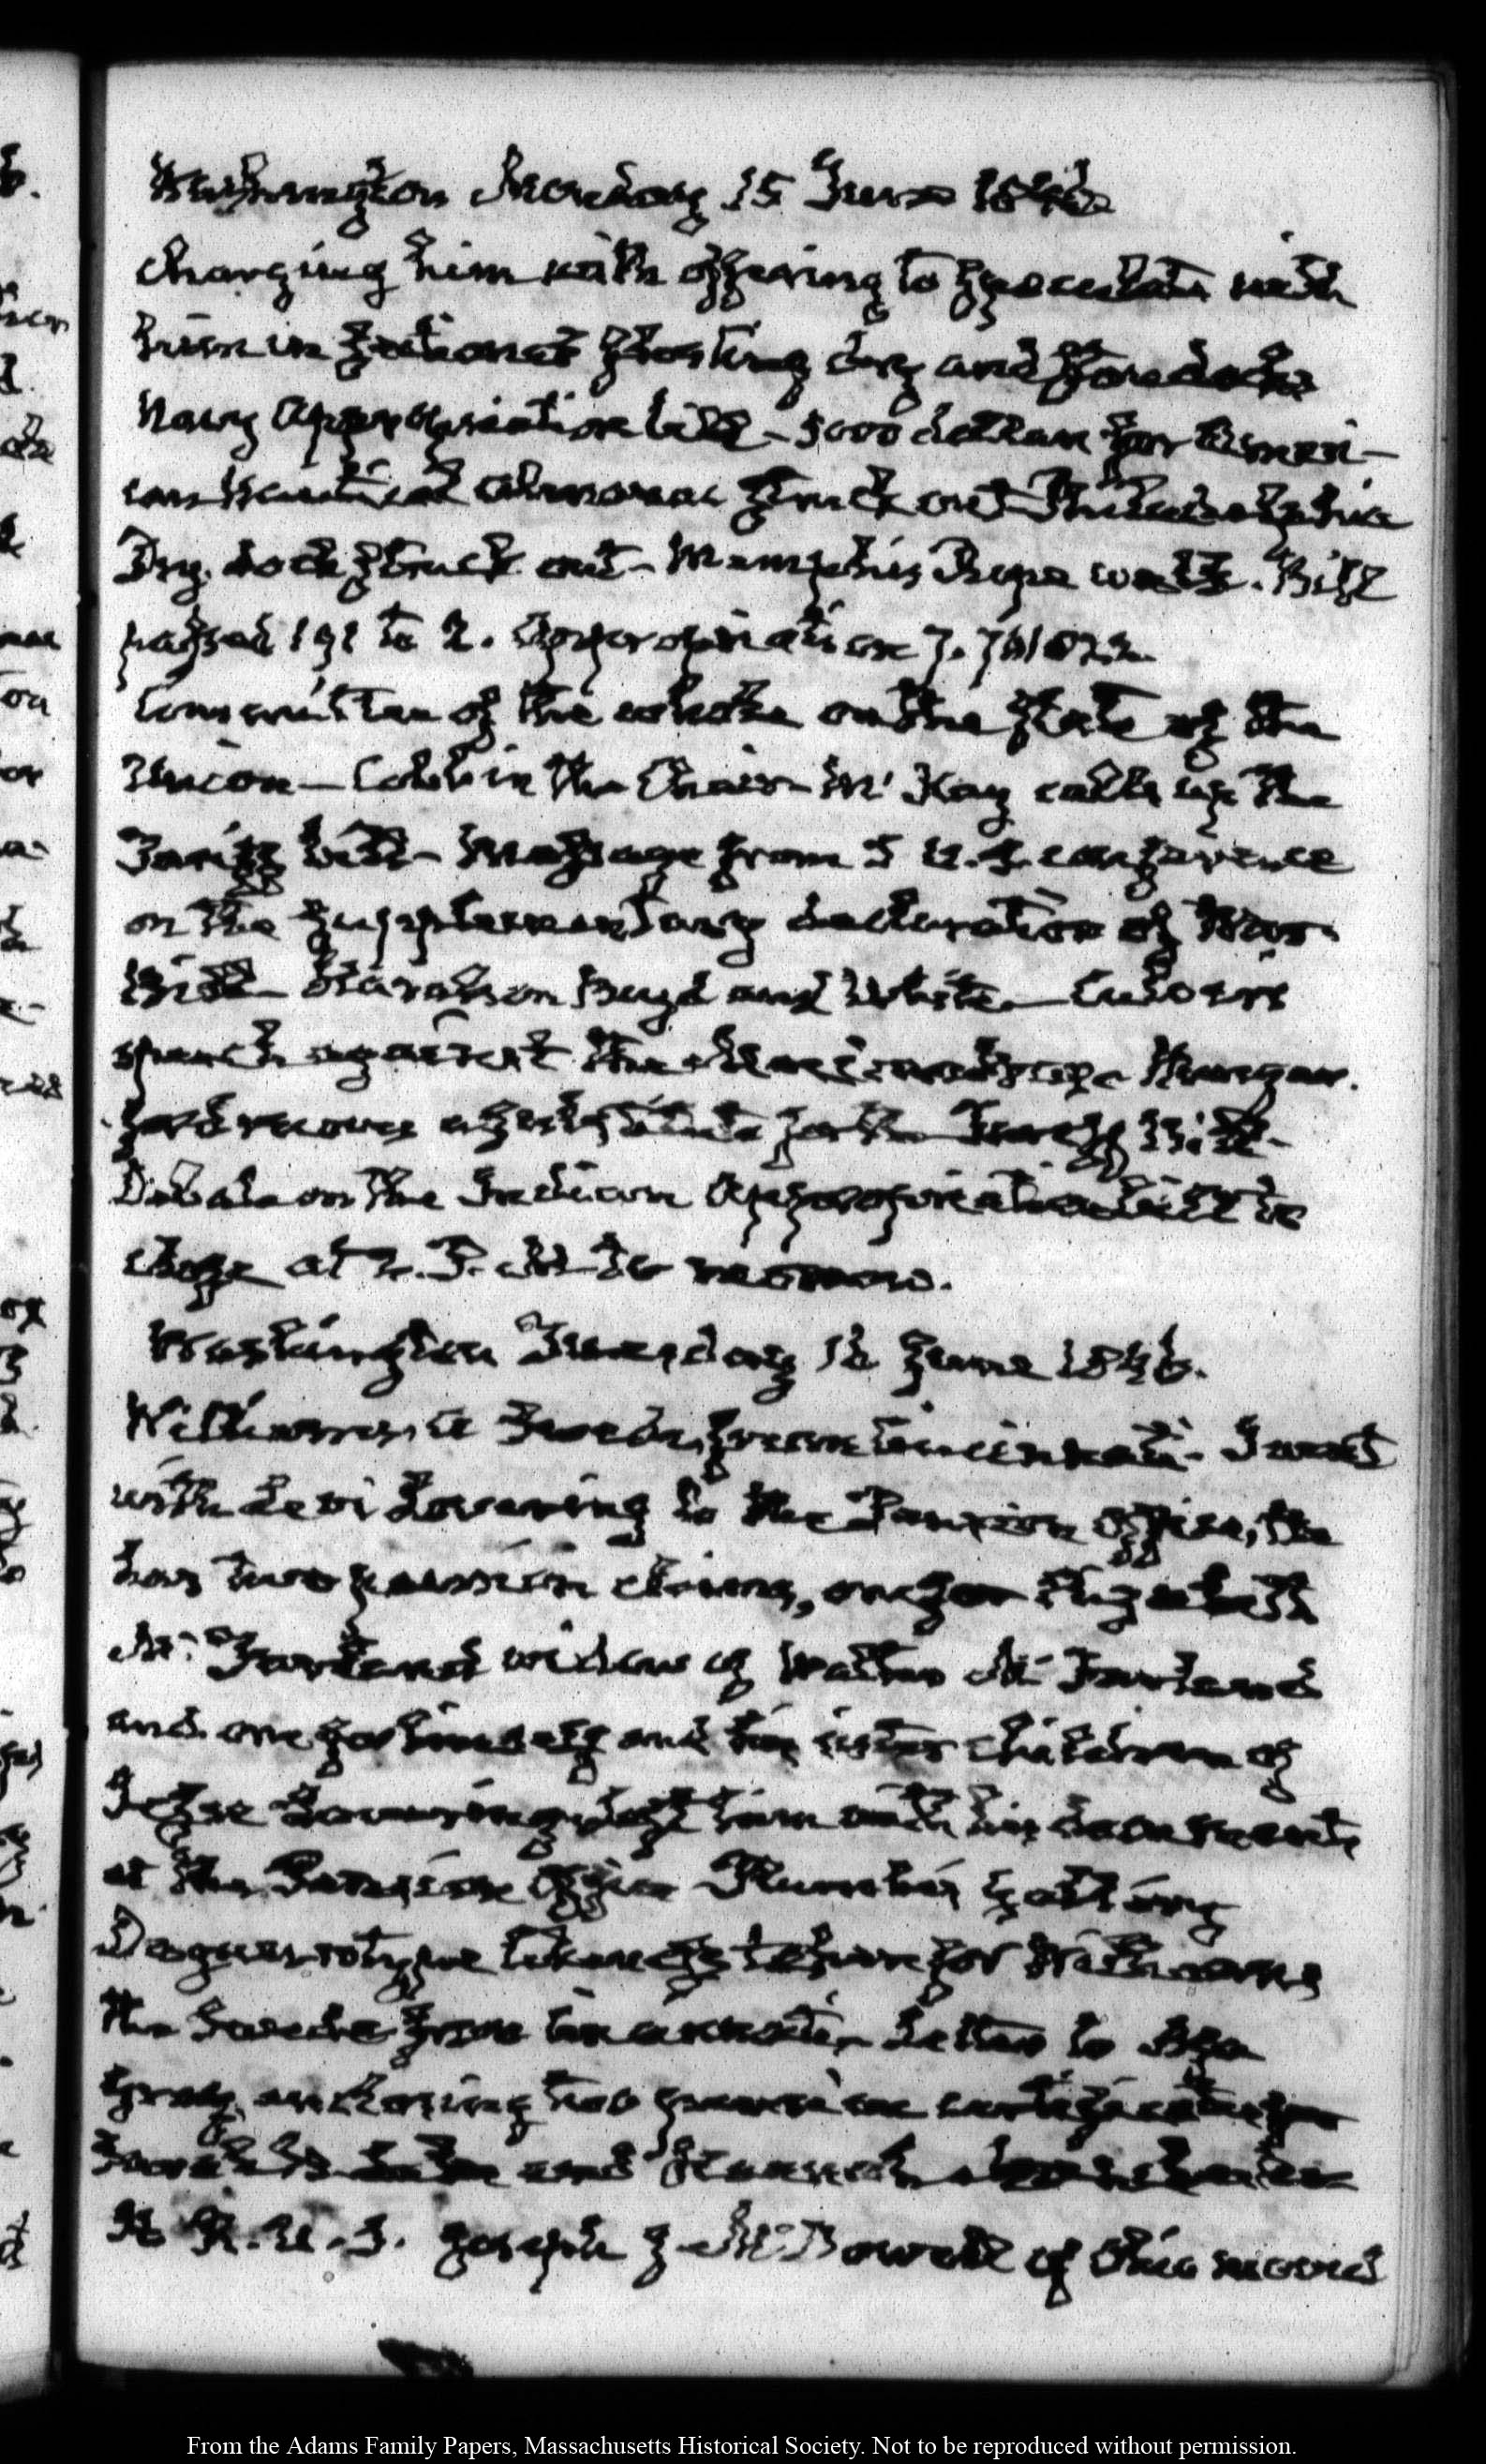 Washington Monday 15 June 1846
charging him with offering to speculate with
him in sectional floating dry and
Navy Appropriation bill – 5000 dollars for Ameri-
can Nautical Almanac struck out – Philadelphia
Dry. dock struck out – Memphis Rope walk. Bill
passed 191 to 2. Appropriation 7.
Committee of the whole on the state of the
Union – Cobb in the Chair – Mc Kay calls up the
Tariff bill – Message from S U.S. conference
on the supplementary declaration of War
Bill – Haralson Boyd and White –
speech against the
moves a substitute for the Tariff Bill –
Debate on the Indian Appropriation bill to
close at 2. P. M. to morrow.
Washington Tuesday 16 June 1846.
Williams, a Swede, from Cincinnati. I went
with Levi Lovering to the Pension office, he
has two pension claims, one for Elizabeth
Mc Farland widow of Mc Farland
and one for himself and his sister children of
Jesse Lovering, left him with his documents
at the Pension Office
Daguerrotype likeness taken for Williams
the Swede from Cincinnati – Letter to
Gray, enclosing two pension certificates for
and Hannah
H R. U. S. Joseph J. Mc Dowell of Ohio moved
From the Adams Family Papers, Massachusetts Historical Society. Not to be reproduced without permission.